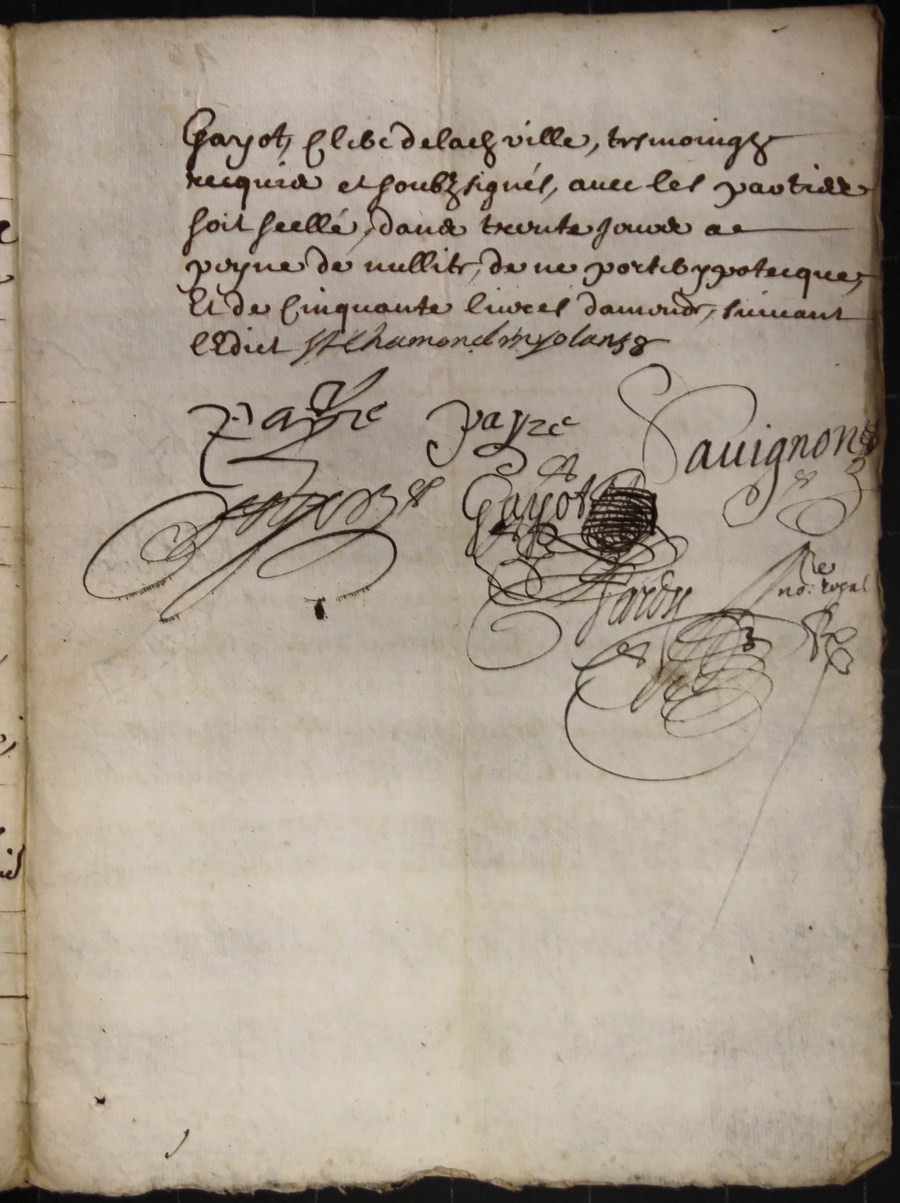 Gayot, Clerc de lad ville, tesmoingz
recquis et soubzsignés, avec les parties
soit scellé, dans trente jours a
peyne de nullité, de ne porter ypotecque,
Et de Cinquante livres damende, suivant
l'Edict St Chamond
Payre Payre Sauignon
Gayot
Tardy
no: Royal